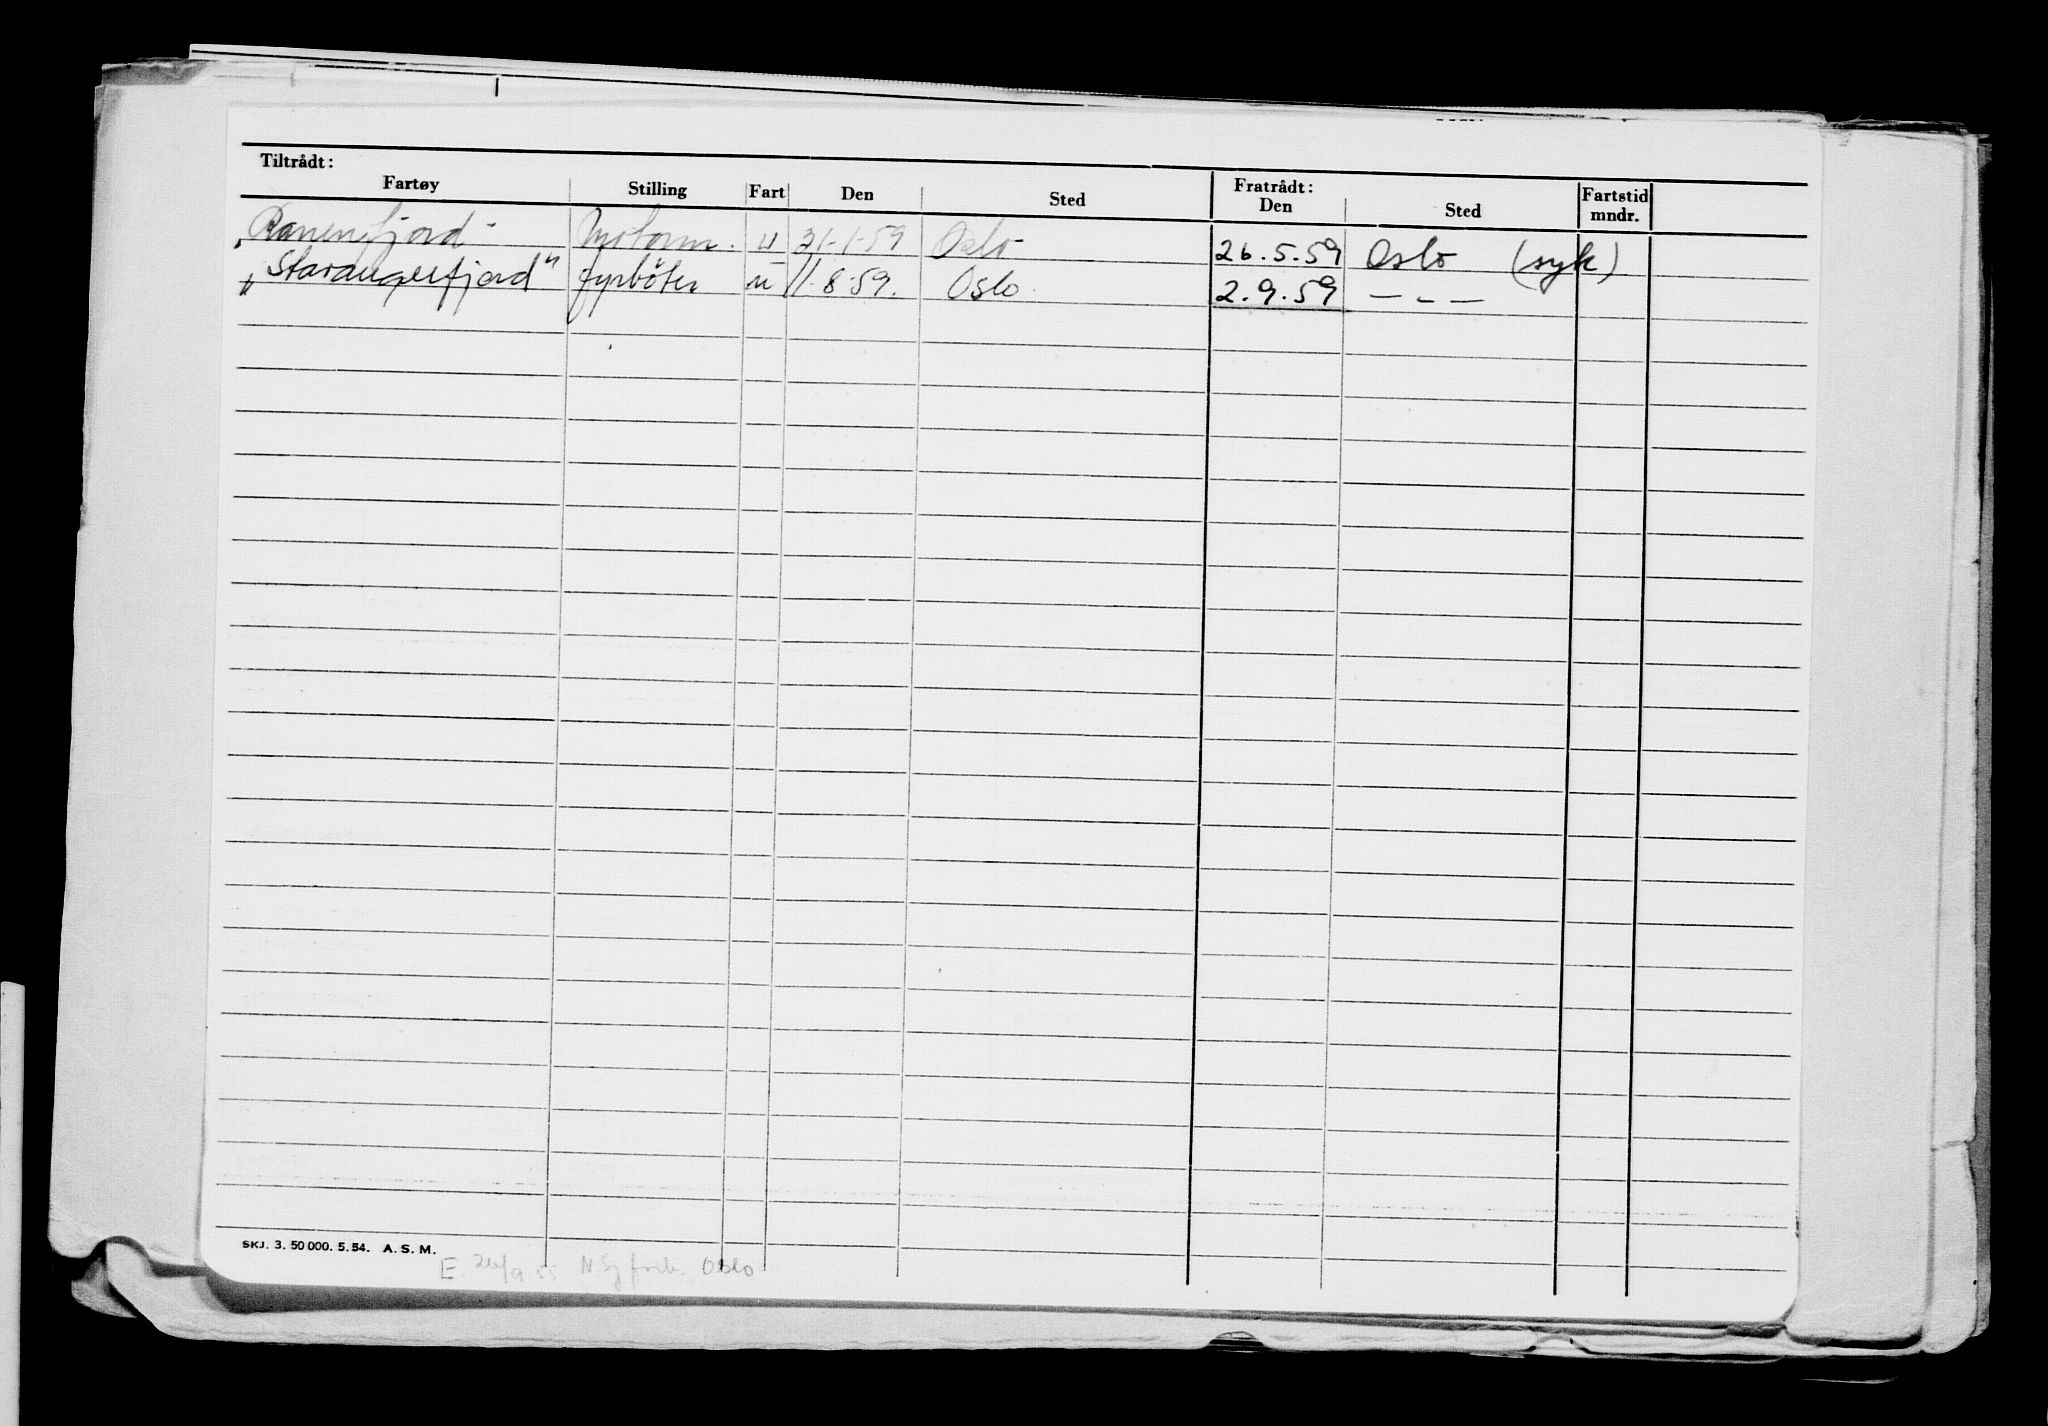 Tiltrådt: Fratrådt:
Fartøy Stilling Fart Den Sted Den Sted Fartstid mndr.
"Ranenfjord" Motorm. u 21-1-59 Oslo 26.5.59 Oslo (syk)
"Stavangerfjord" fyrböter u 11-8-59. Oslo 2.9.59 — - —
SKJ. 3. 50 000. 5. 54. A. S. M.
E. 26/9 55 N. Sj. forb. Oslo